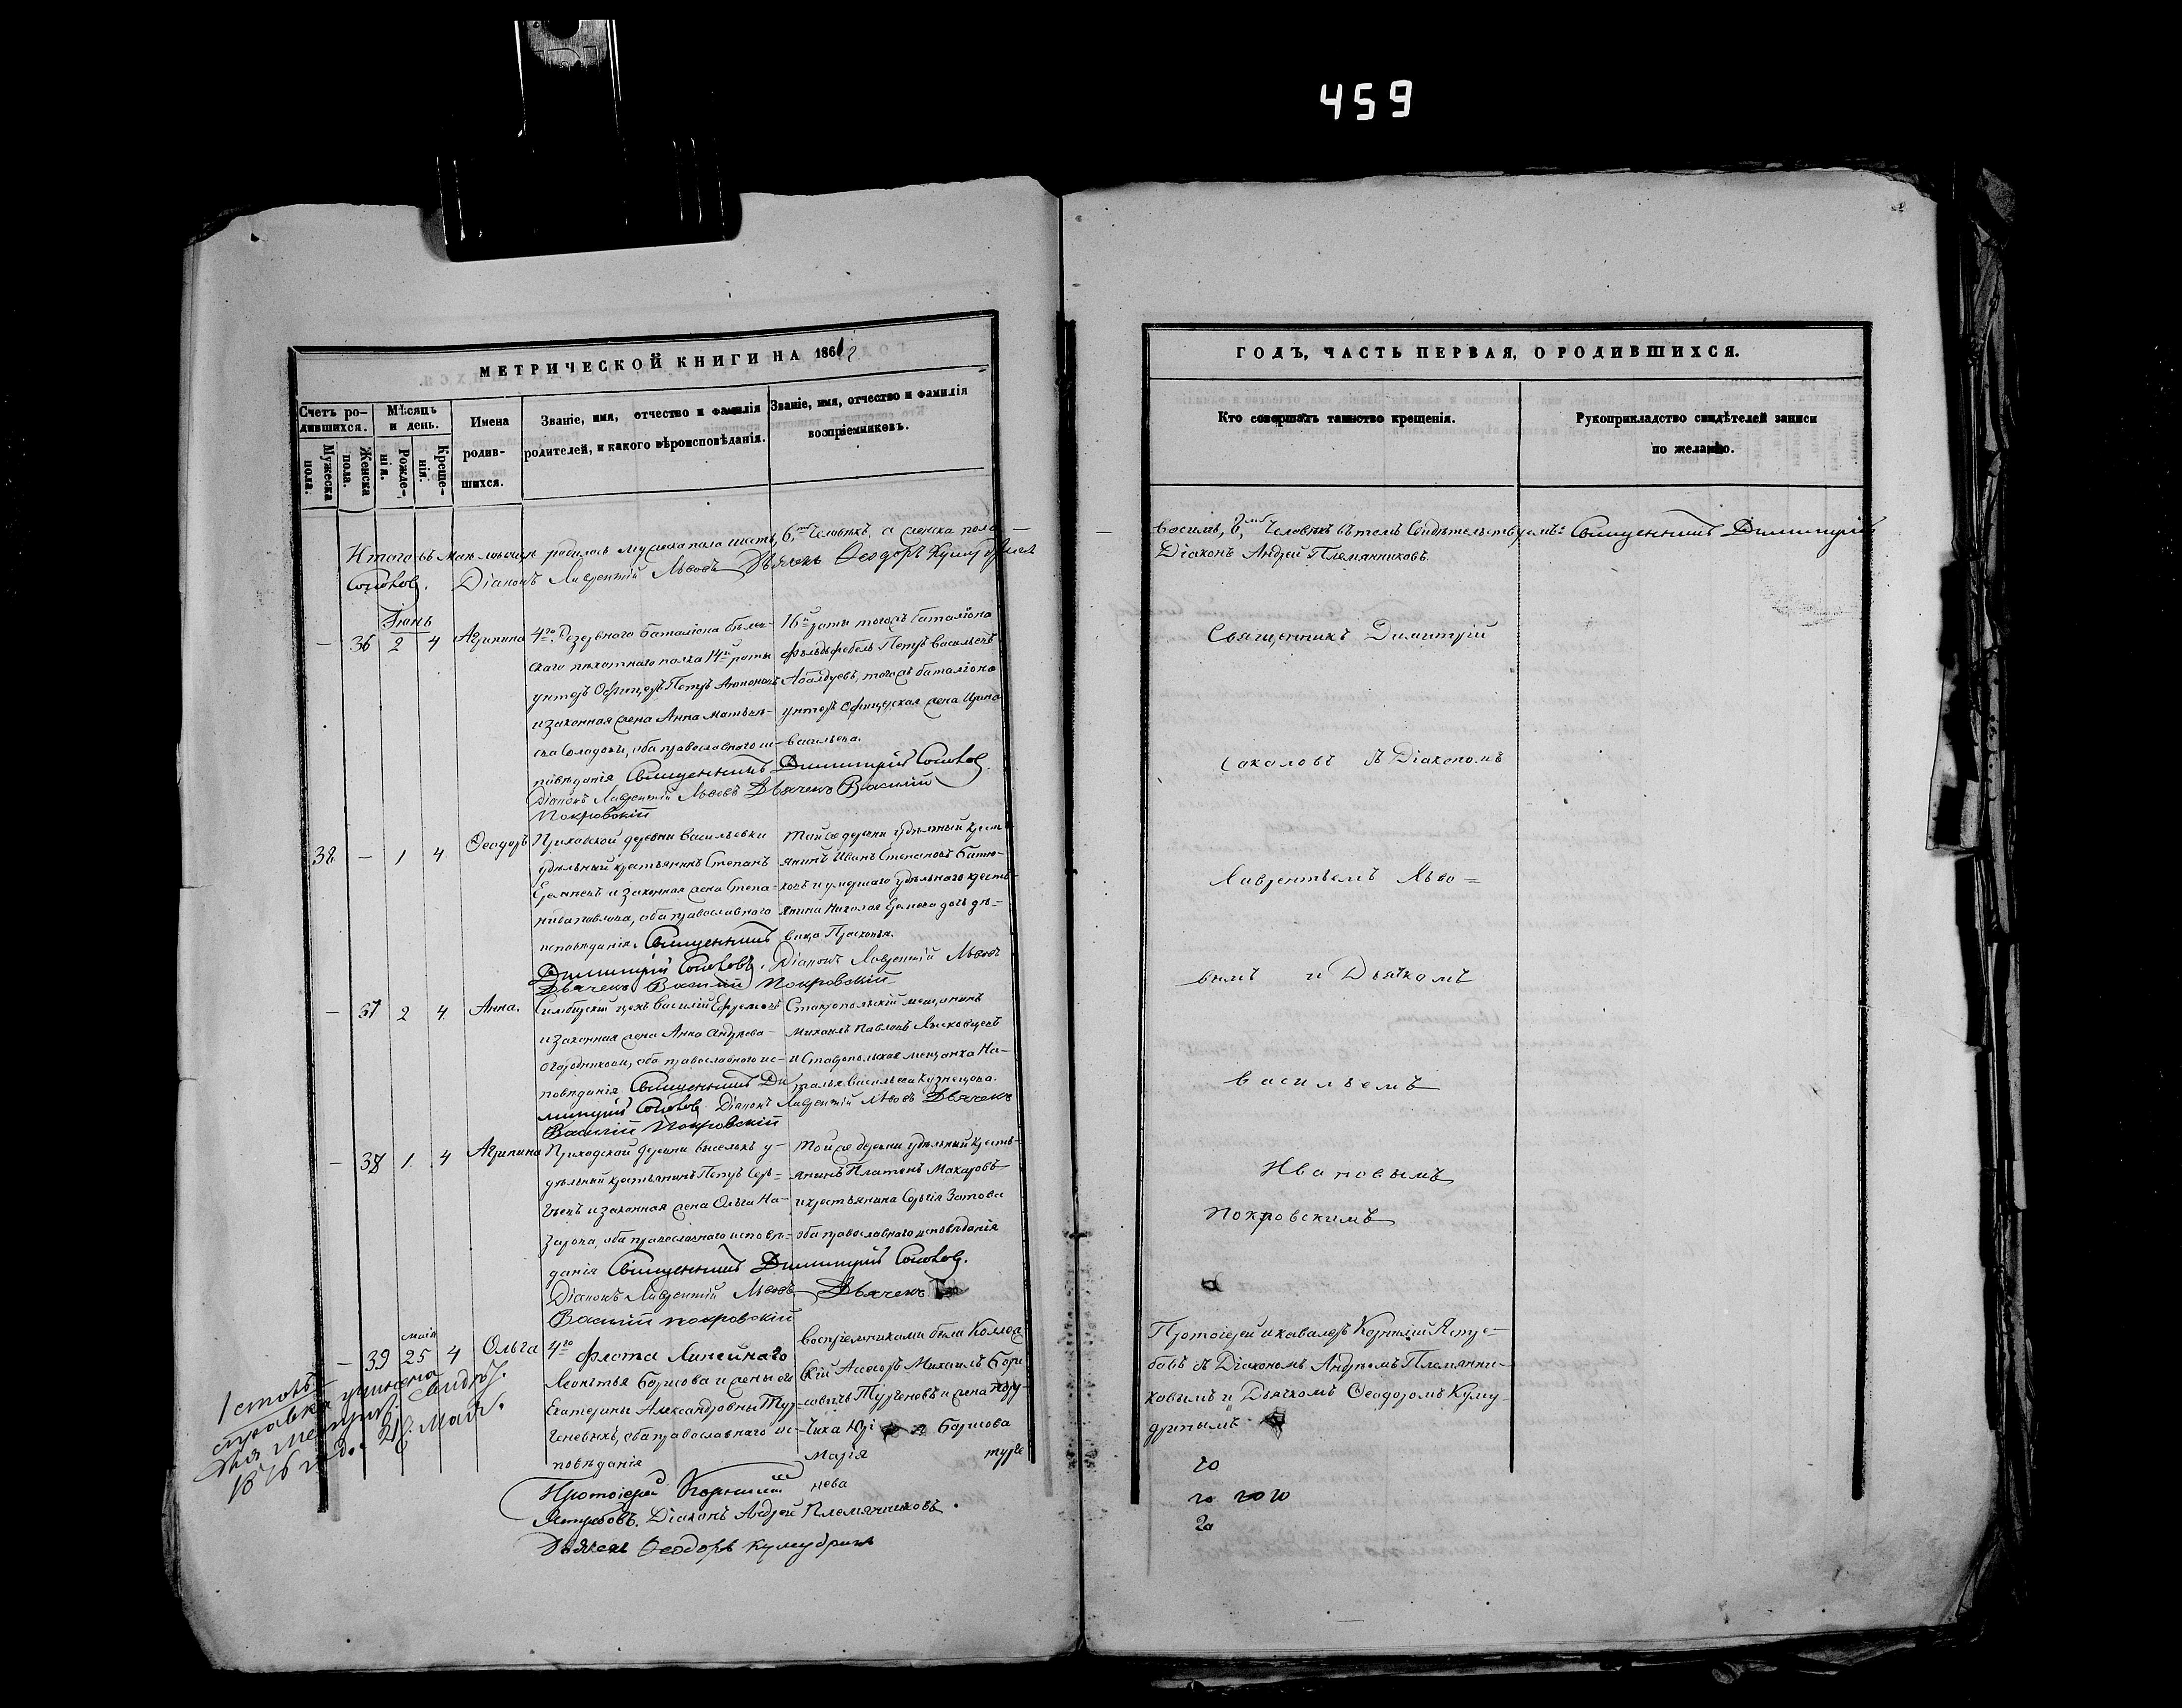 459
МЕТРИЧЕСКОЙ КНИГИ НА 1862
Счетъ ро-
дившихся.
Мужеска пола.
Женска пола.
Мѣсяцъ
и день.
Рожде-
нія.
Креще-
нія.
Имена
родив-
шихся.
Званіе, имя, отчество и фамилія
родителей, и какого вѣроисповѣданія.
Званіе, имя, отчество и фамилія
воспріемниковъ.
Итого въ маѣ мѣсяцѣ родилось мужеска пола шесть, 6, человѣкъ, а женска пола
Соколовъ. Діаконъ Лаврентій Львовъ Дьячекъ Ѳеодоръ
Іюнь
— 36 2 4 Агрипина
4го Резервнаго баталіона бѣлев-
скаго пѣхотнаго полка 14й роты
унтеръ Офицеръ Петръ
и законная жена Анна Матвѣе-
ва, оба православнаго ис-
повѣданія Священникъ Димитрій Соколовъ.
Діаконъ Лаврентій Львовъ Дьячекъ Василій
Покровскій
16й роты того жъ баталіона
фельдфебель Петръ Васильевъ
того жъ баталіона
унтеръ офицерская жена Ирина
Васильева.
38 — 1 4 Ѳеодоръ
Приходской деревни Васильевки
удѣльный крестьянинъ Степанъ
и законная жена Степа-
нида Павлова, оба православнаго
исповѣданія. Священникъ
Димитрій Соколовъ. Діаконъ Лаврентій Львовъ
Дьячекъ Василій Покровскій
Той же деревни удѣльный крест-
янинъ Иванъ Степановъ
и умершаго удѣльнаго кресть-
янина Николая дочь дѣ-
вица Прасковья.
— 37 2 4 Анна.
Симбирскій цехъ Василій Ефремовъ
и законная жена Анна Андреева
оба православнаго ис-
повѣданія Священникъ Ди-
митрій Соколовъ Діаконъ Лаврентій Львовъ Дьячекъ
Василій Покровскій
Ставропольскій мещанинъ
Михаилъ Павловъ
и Ставропольская мещанка На-
талья Васильева Кузнецова.
— 38 1 4 Агрипина
Приходской деревни выселокъ у-
дѣльный крестьянинъ Петръ Сер-
гѣевъ и законная жена Ольга На-
зарова, оба православнаго исповѣ-
данія Священникъ Димитрій Соколовъ.
Діаконъ Лаврентій Львовъ Дьячекъ
Василій Покровскій
Той же деревни удѣльный кресть-
янинъ Платонъ Макаровъ
и крестьянина Сергія Зотова
оба православнаго исповѣданія
маія
— 39 25 4 Ольга
4го флота Линейнаго
Леонтья Борисова и жены его
Екатерины Александровны Тур-
геневыхъ, оба православнаго ис-
повѣданія
Протоіерей Корнилій
Ястребовъ. Діаконъ Андрей Племянниковъ.
Дьячекъ Ѳеодоръ Кумудринъ
воспріемниками были Коллеж-
скій Ассесоръ Михаилъ Бори-
совичъ Тургеневъ и жена пору-
чика Борисова
Марія турге
нева
справка учинена
1876 года 28 Мая.
ГОДЪ, ЧАСТЬ ПЕРВАЯ, О РОДИВШИХСЯ.
Кто совершалъ таинство крещенія.
Рукоприкладство свидѣтелей записи
по желанію.
восемь, 8, человѣкъ въ темъ Свидѣтельствуемъ: Священникъ Димитрій
Діаконъ Андрей Племянниковъ.
Священникъ Димитрій
Соколовъ съ Діакономъ
Лаврентьемъ Льво=
вымъ и Дьячкомъ
Васильемъ
Ивановымъ
Покровскимъ
Протоіерей и кавалеръ Корнилій Ястре-
бовъ съ Діакономъ Андреемъ Племянни-
ковымъ и Дьячкомъ Ѳеодоромъ Куму-
дринымъ